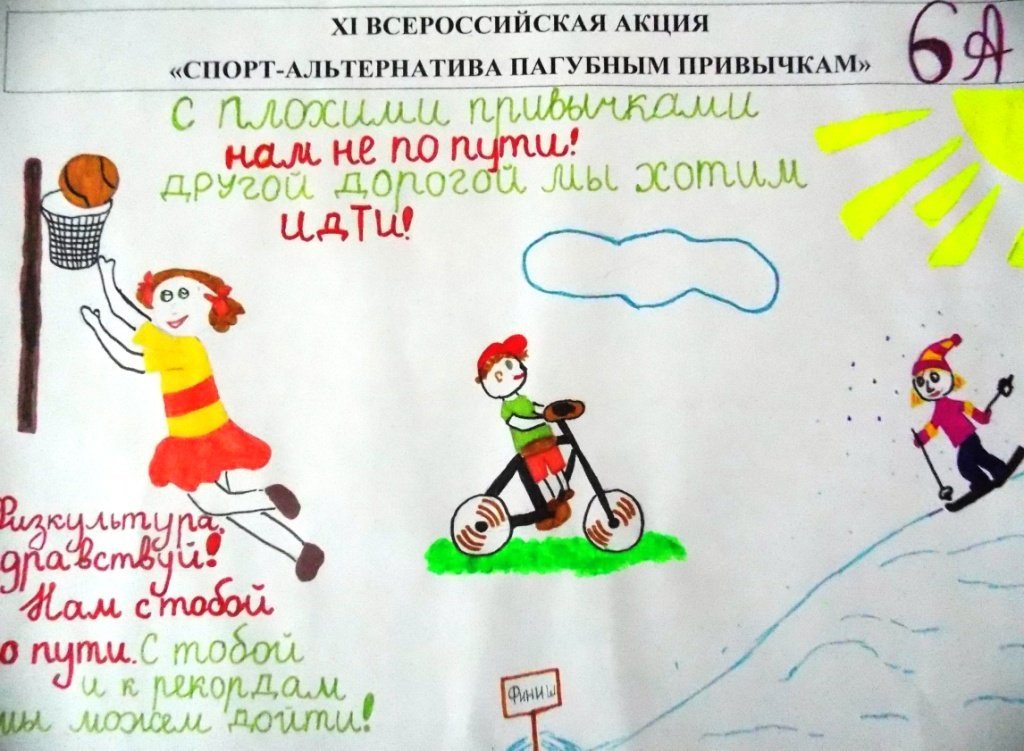 XI ВСЕРОССИЙСКАЯ АКЦИЯ
«СПОРТ-АЛЬТЕРНАТИВА ПАГУБНЫМ ПРИВЫЧКАМ»
6 А
С плохими привычками
нам не по пути!
другой дорогой мы хотим
идти!
Физкультура,
здравствуй!
Нам с тобой
по пути. С тобой
и к рекордам
мы можем дойти!
Финиш